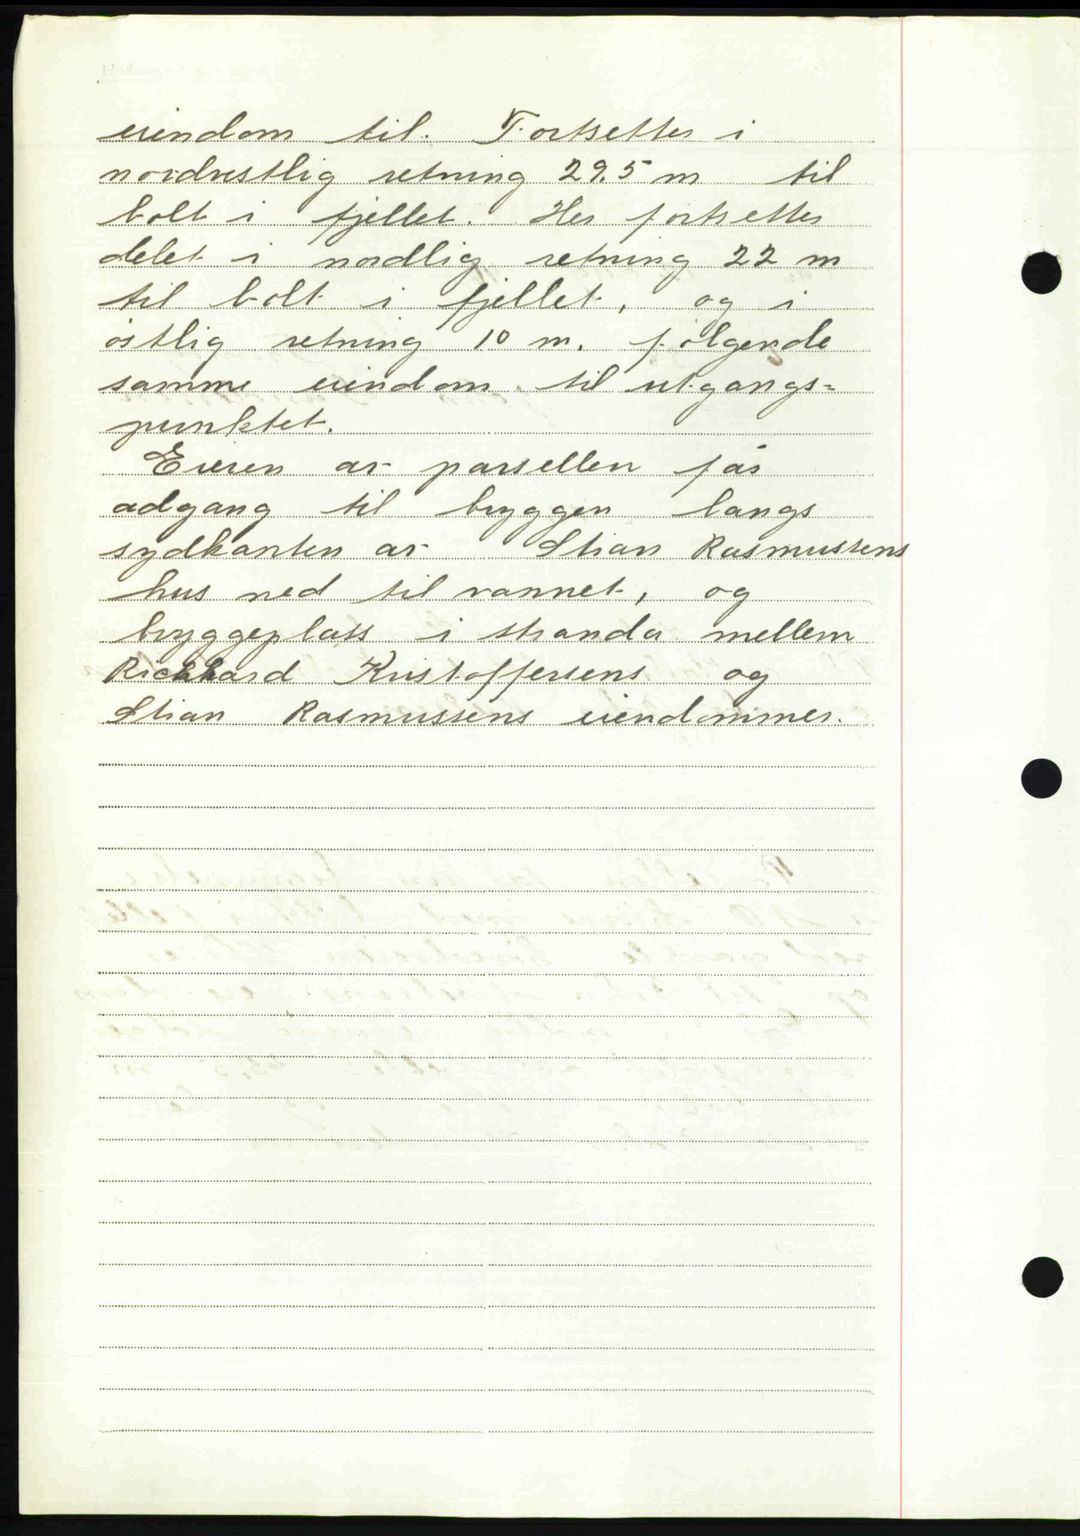 eiendom til. Fortsetter i
nordvestlig retning 29.5 m til
bolt i fjellet. Her fortsetter
delet i nordlig retning 22 m
til bolt i fjellet, og i
östlig retning 10 m. følgende
samme eiendom til utgangs=
punktet.
Eieren av parsellen får
adgang til bryggen langs
sydkanten av Stian Rasmussens
hus ned til vannet, og
bryggeplass i stranda mellem
Richard Kristoffersens og
Stian Rasmussens eiendommer.